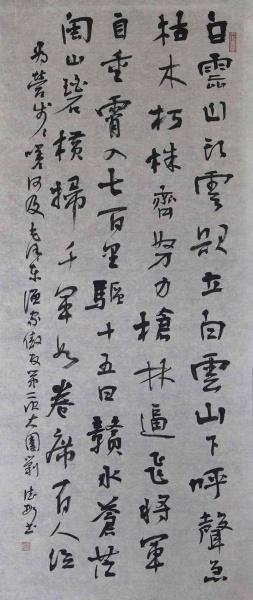 白雲山头雲欲立白雲山下呼聲急
枯木朽株齊努力槍林逼飛將軍
自重霄入七百里驅十五日贛水蒼茫
閩山碧橫掃千軍如卷席有人泣
为營步々嗟何及毛泽东漁家傲反第二次大圍剿 書